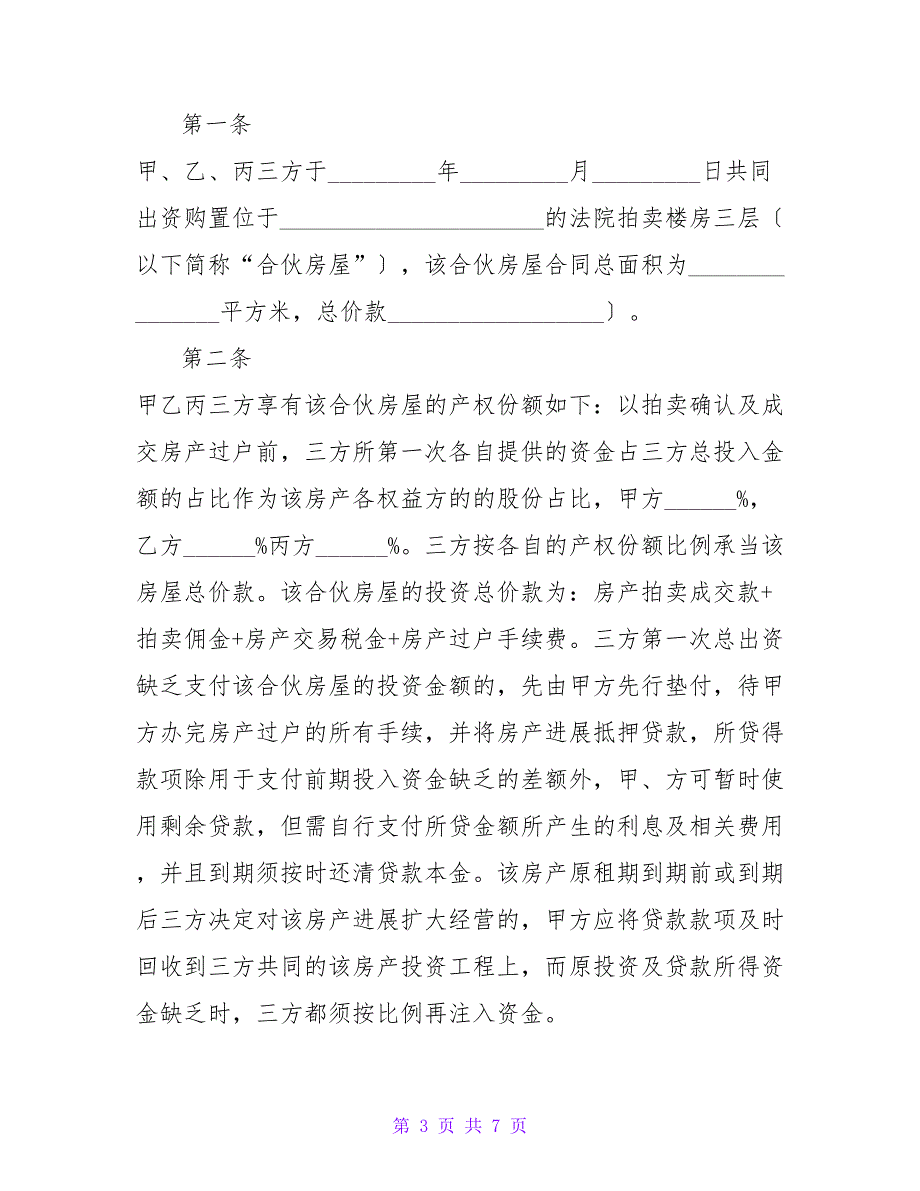 第一条
甲、乙、丙三方于_________年_________月_________日共同
出资购置位于______________________的法院拍卖楼房三层〔
以下简称“合伙房屋”〕，该合伙房屋合同总面积为________
_______平方米，总价款__________________〕。
第二条
甲乙丙三方享有该合伙房屋的产权份额如下：以拍卖确认及成
交房产过户前，三方所第一次各自提供的资金占三方总投入金
额的占比作为该房产各权益方的的股份占比，甲方______%，
乙方______%丙方______%。三方按各自的产权份额比例承当该
房屋总价款。该合伙房屋的投资总价款为：房产拍卖成交款+
拍卖佣金+房产交易税金+房产过户手续费。三方第一次总出资
缺乏支付该合伙房屋的投资金额的，先由甲方先行垫付，待甲
方办完房产过户的所有手续，并将房产进展抵押贷款，所贷得
款项除用于支付前期投入资金缺乏的差额外，甲、方可暂时使
用剩余贷款，但需自行支付所贷金额所产生的利息及相关费用
，并且到期须按时还清贷款本金。该房产原租期到期前或到期
后三方决定对该房产进展扩大经营的，甲方应将贷款款项及时
回收到三方共同的该房产投资工程上，而原投资及贷款所得资
金缺乏时，三方都须按比例再注入资金。
第 3 页 共 7 页